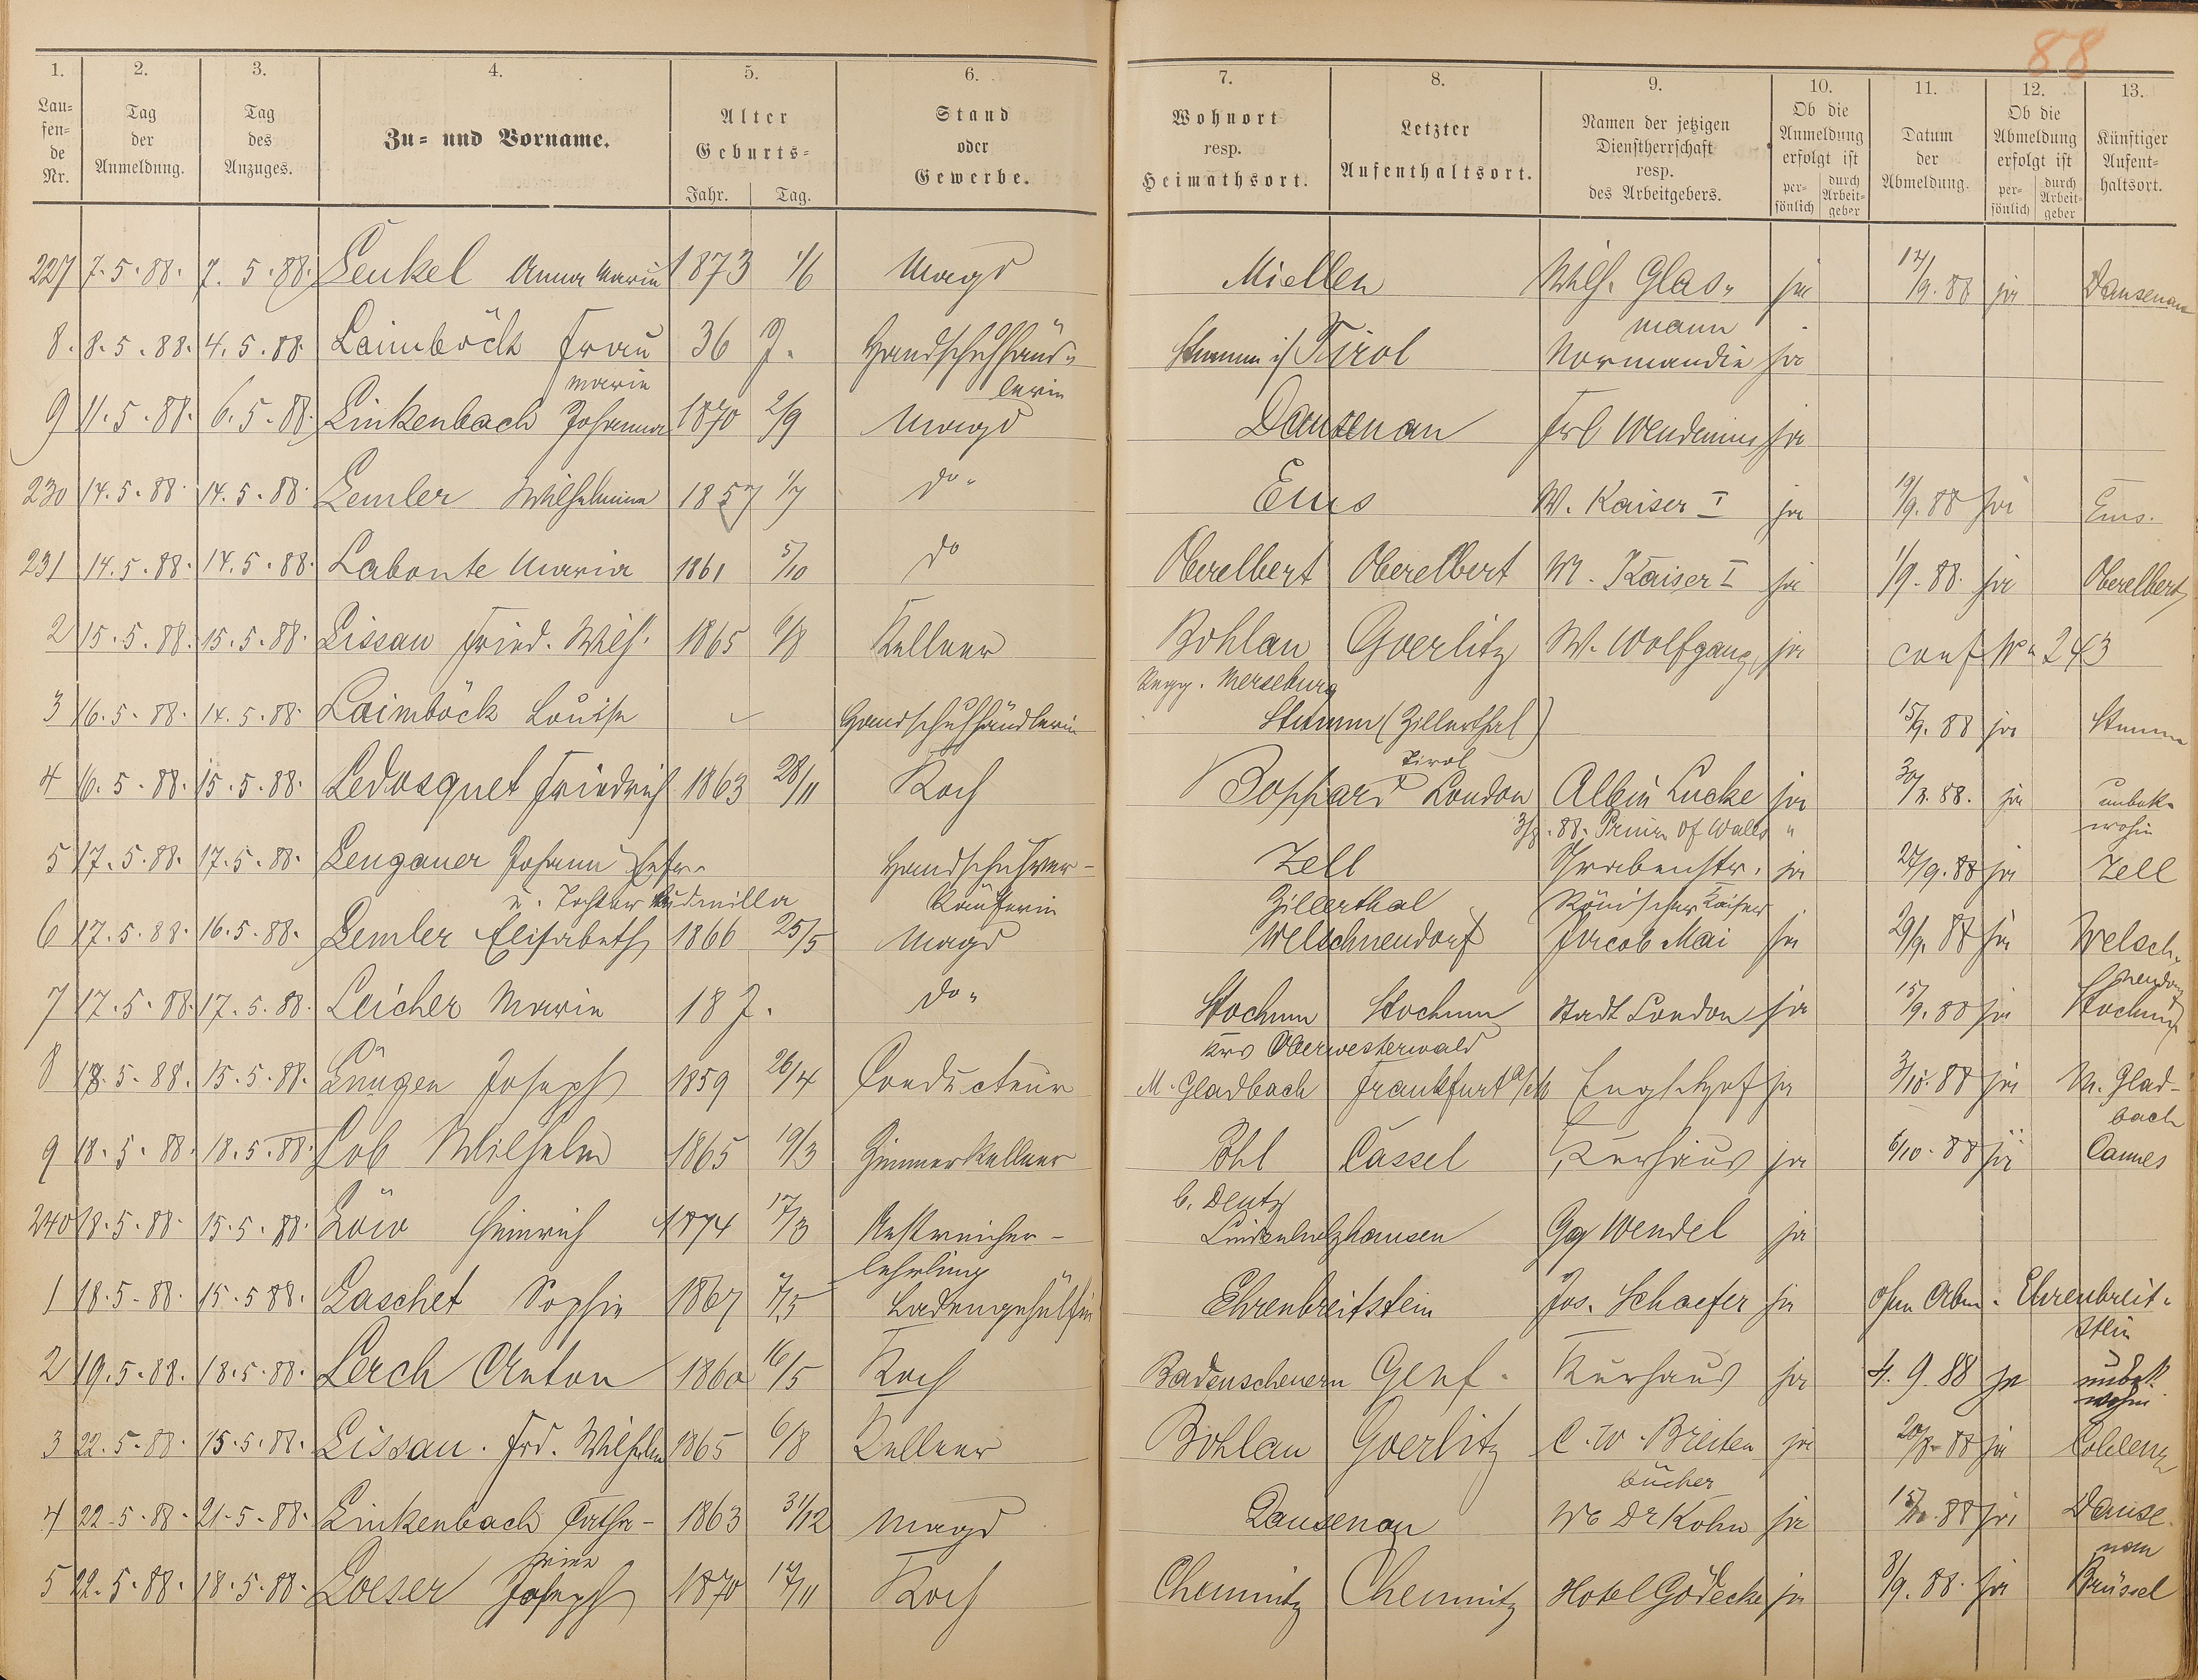 88
1. 2. 3. 4. 5. 6. 7. 8. 9. 10. 11. 12. 13.
Lau=fen=de Nr. Tag der Anmeldung. Tag des Anzuges. Zu= und Vorname. Alter Geburts= Jahr. Tag. Stand oder Gewerbe. Wohnort resp. Heimathsort. Letzter Aufenthaltsort. Namen der jetzigen Dienstherrschaft resp. des Arbeitgebers. Ob die Anmeldung erfolgt ist per=sönlich durch Arbeit=geber Datum der Abmeldung. Ob die Abmeldung erfolgt ist per=sönlich durch Arbeit=geber Künftiger Aufent=haltsort.
227 7.5.88. 7.5.88. Leukel Anna Maria 1873 1/6 Magd Miellen Wilh. Glas- ja /9.88 ja Dausenau
mann
8. 8.5.88. 4.5.88. Laimböck Frau 36 J. Handschuhhänd- Stumm i/ Tirol Normandie ja
Marie lerin
9 11.5.88. 6.5.88. Linkenbach Johanna 1870 2/9 Magd Dausenau Frl ja
230 14.5.88. 14.5.88. Lemler Wilhelmine 1857 1/7 do. Ems W. Kaiser I ja 19/9.88 ja Ems.
231 14.5.88. 14.5.88. Labonte Maria 1861 5/10 do Oberelbert Oberelbert W. Kaiser I ja 1/9.88. ja Oberelbert
2 15.5.88. 15.5.88. Lissau Fried. Wilh. 1865 6/8 Kellner Bohlau Goerlitz W. Wolfgang ja conf No 243
Merseburg
3 16.5.88. 14.5.88. Laimböck Louise Handschuhhändlerin Stumm (Zillerthal) 15/9.88 ja Stumm
Tirol
4 16.5.88. 15.5.88. Ledosquet Friedrich 1863 28/11 Koch Boppard London Albin Lucke ja 30/8.88. ja unbek.
of Wales " wohin
5 17.5.88. 17.5.88. Lengauer Johann Ehefr. Handschuhver- Zell Grabenstr. ja 27/9.88 ja Zell
u. Tochter Ludmilla käuferin Zillerthal Römischer Kaiser
6 17.5.88. 16.5.88. Lemler Elisabeth 1866 25/5 Magd Welschneudorf Jacob Mai ja 29/9.88 ja Welsch-
neudorf
7 17.5.88. 17.5.88. Leicher Marie 18 J. do. Stochum Stochum Stadt London ja 15/9.88 ja Stochum
Oberwesterwald
8 18.5.88. 15.5.88. Lüngen Joseph 1859 26/4 Conducteur M. Gladbach Frankfurt a/M Engl. Hof ja 3/10.88 ja M. Glad-
bach
9 18.5.88. 18.5.88. Lob Wilhelm 1865 19/3 Zimmerkellner Cassel Kurhaus ja 6/10.88 ja Cannes
b. Deutz
240 18.5.88. 15.5.88. Löw Heinrich 1874 17/3 Anstreicher- Lindenholzhausen Gg Wendel ja
lehrling
1 18.5.88. 15.5.88. Laschet Sophie 1867 7/5 Ladengehülfin Ehrenbreitstein Jos. Schaefer ja ohne Abm. Ehrenbreit-
stein
2 19.5.88. 18.5.88. Lerch Anton 1860 16/5 Koch Genf. Kurhaus ja 4.9.88 ja unbek.
wohin
3 22.5.88. 15.5.88. Lissau. Frd. Wilhelm 1865 6/8 Kellner Bohlau Goerlitz C. W. Breiten ja 20/8.88 ja Coblenz
bücher
4 22.5.88. 21.5.88. Linkenbach Catha- 1863 31/12 Magd Dausenau Dr Kohn ja 88 ja Dause-
rine nau
5 22.5.88. 18.5.88. Loeser Joseph 1870 17/11 Koch Chemnitz Chemnitz Hotel Gödecke ja 8/9.88. ja Brüssel